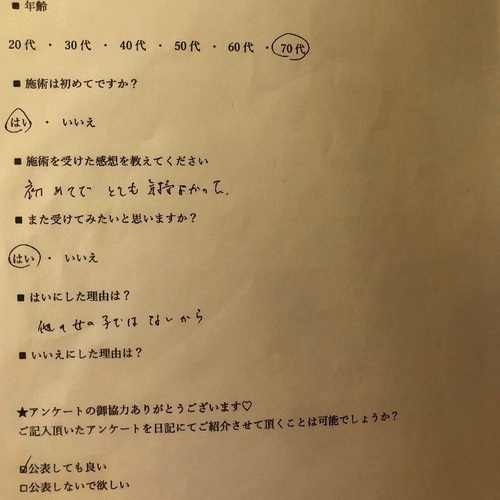 ■ 年齢
20代 ・ 30代 ・ 40代 ・ 50代 ・ 60代 ・ 70代
■ 施術は初めてですか？
はい ・ いいえ
■ 施術を受けた感想を教えてください
初めてで とても 気持よかった。
■ また受けてみたいと思いますか？
はい ・ いいえ
■ はいにした理由は？
他の女の子ではないから
■ いいえにした理由は？
★アンケートの御協力ありがとうございます♡
ご記入頂いたアンケートを日記にてご紹介させて頂くことは可能でしょうか？
☑公表しても良い
□公表しないで欲しい